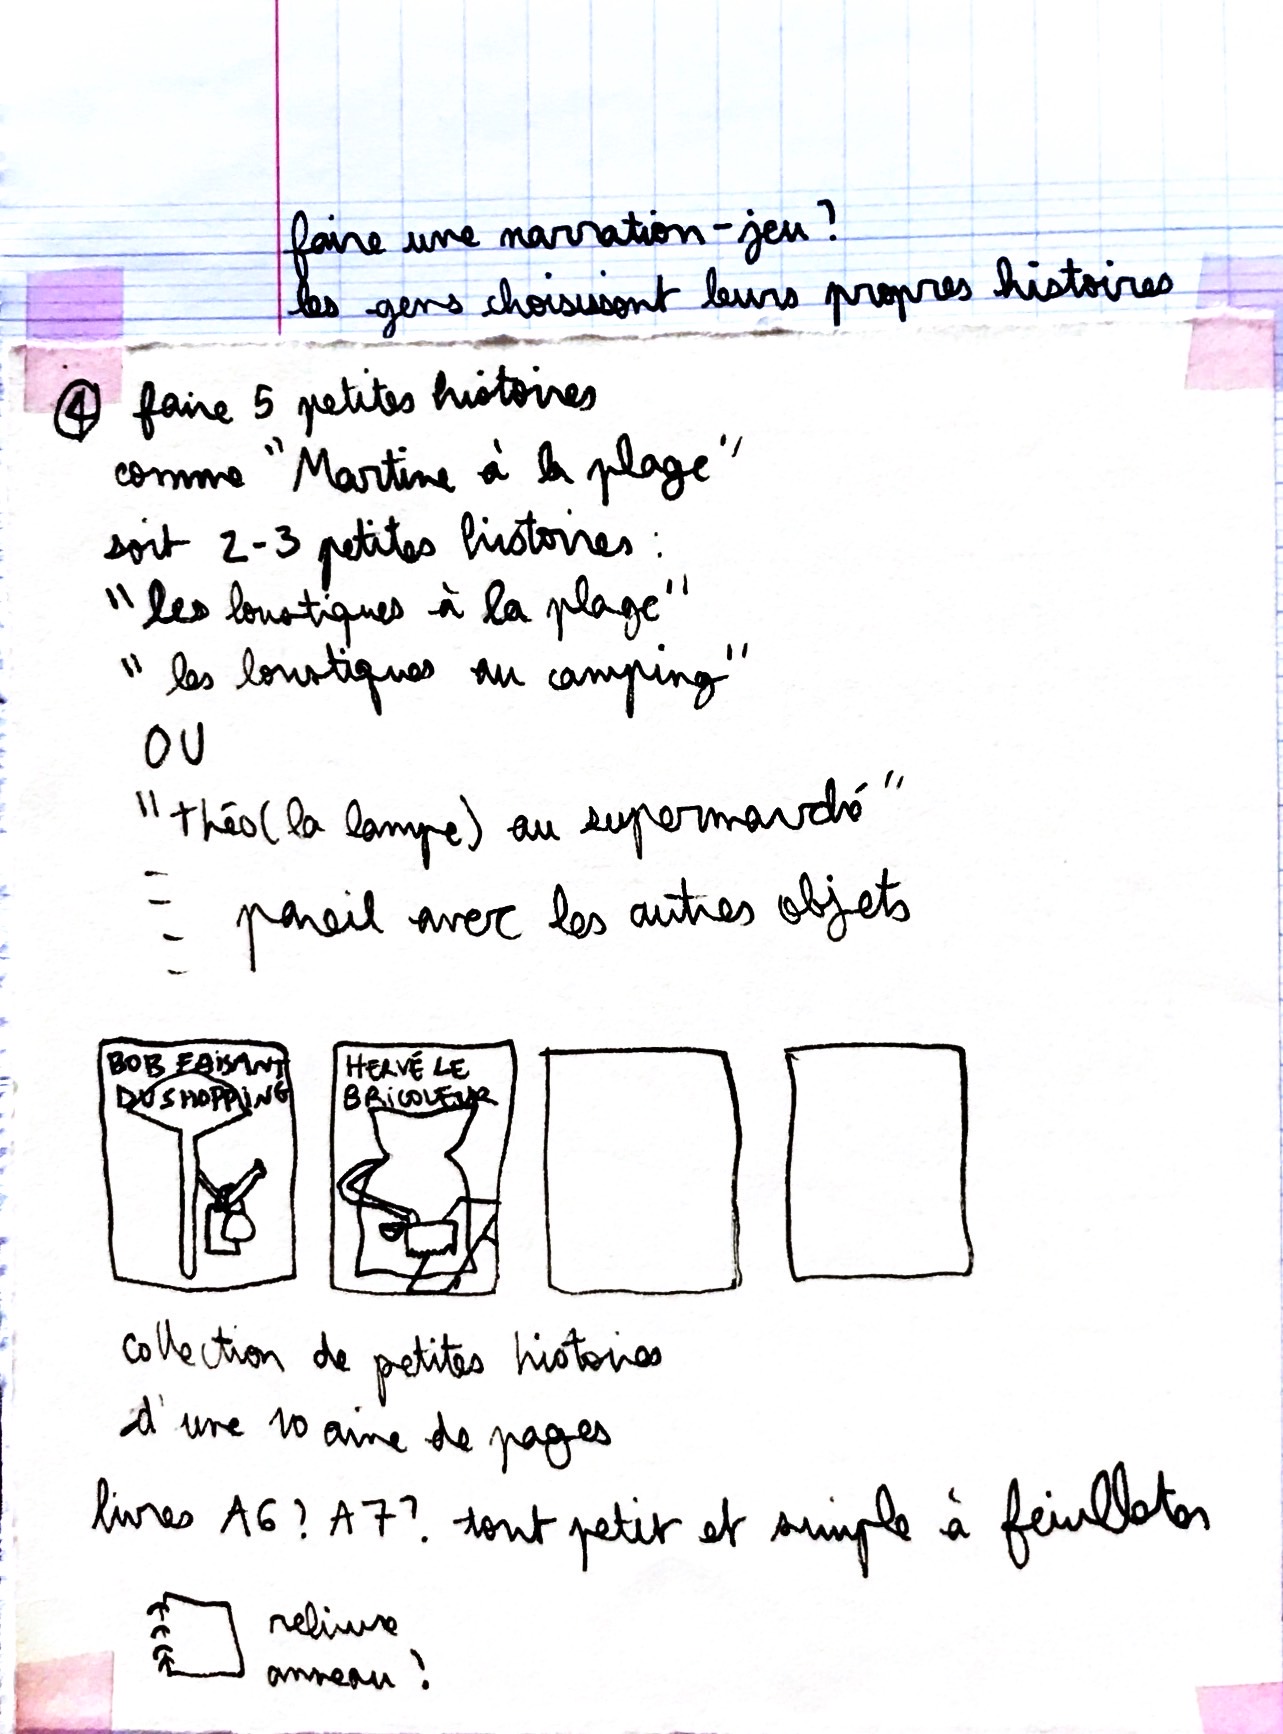 faire une narration-jeu?
les gens choisissent leurs propres histoires
④ faire 5 petites histoires
comme "Martine à la plage"
soit 2-3 petites histoires :
"les loustiques à la plage"
"les loustiques au camping"
OU
"théo (la lampe) au supermarché"
-
- pareil avec les autres objets
-
-
BOB FAISANT
DU SHOPPING
HERVÉ LE
BRICOLEUR
collection de petites histoires
d'une 10aine de pages
livres A6? A7? tout petit et simple à feuilleter
reliure
anneau?